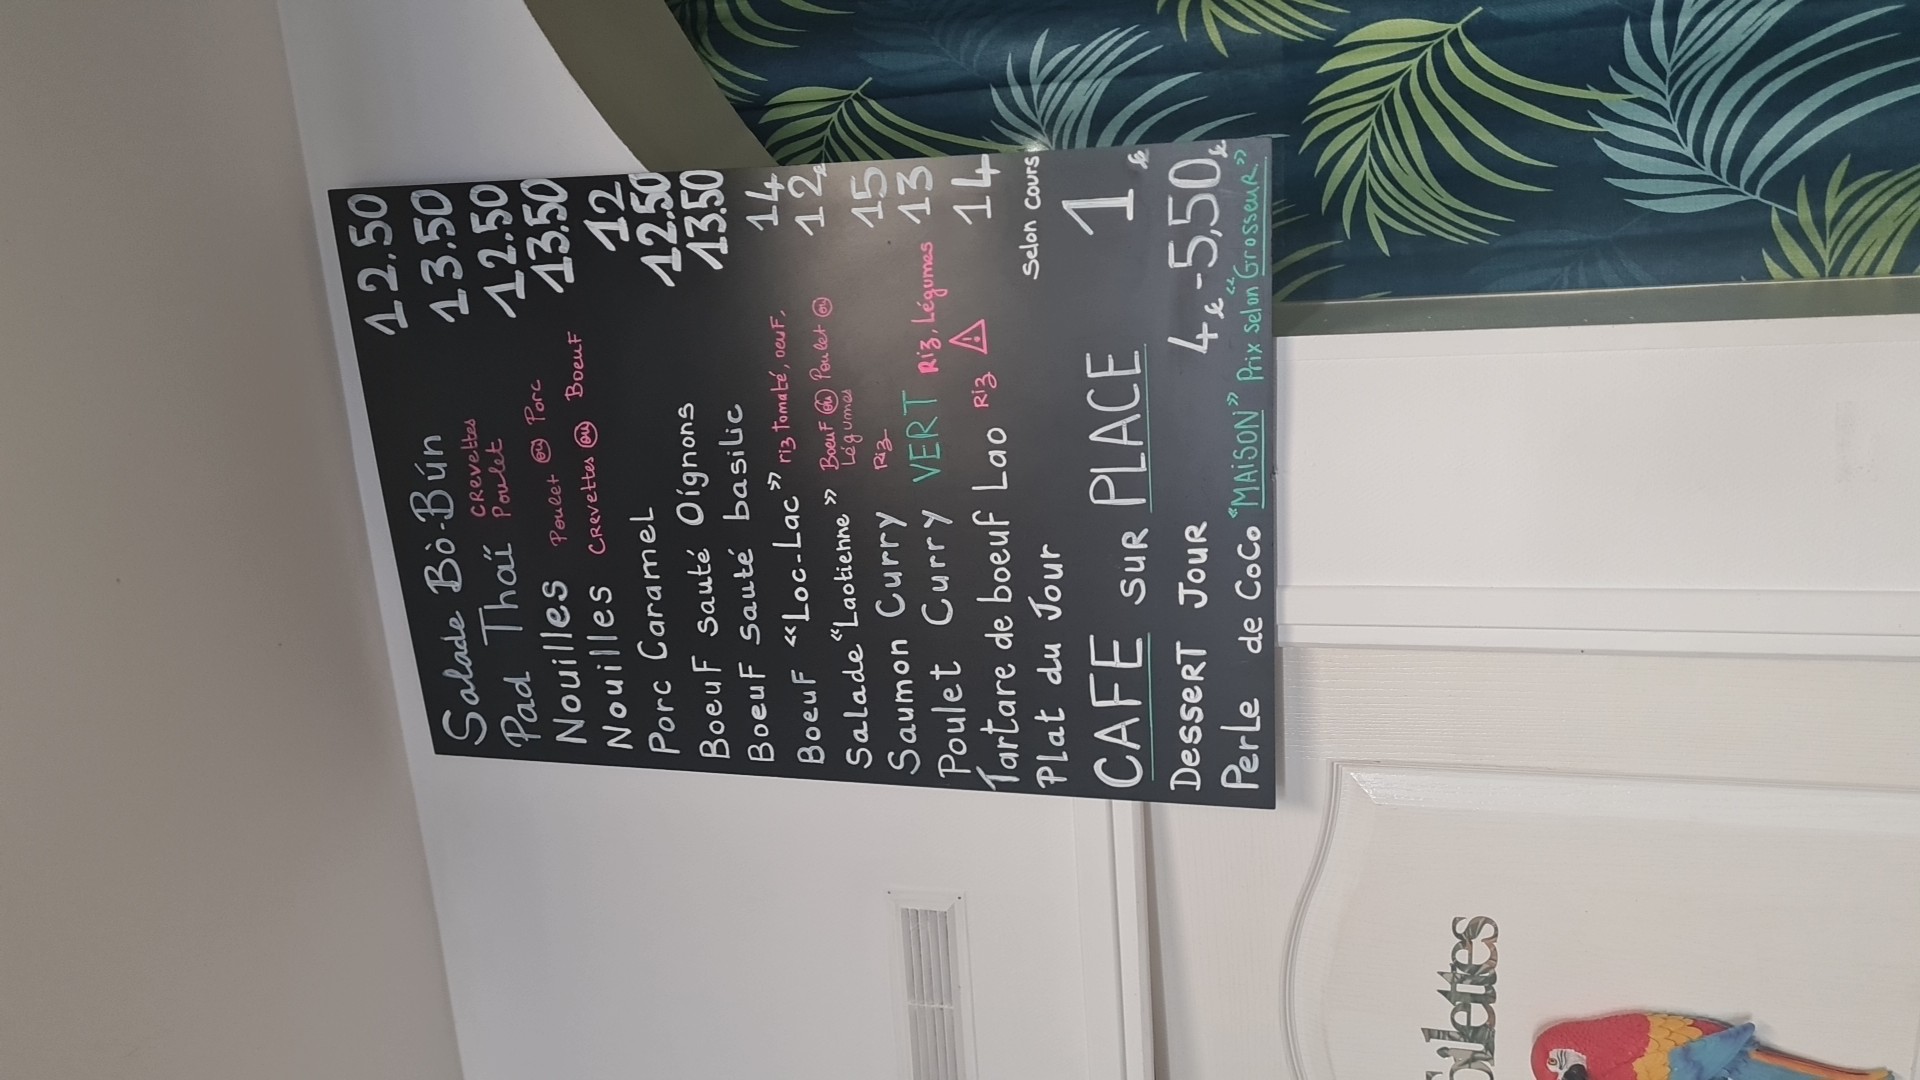 Salade Bò-Bún 12.50
Pad Thaï Crevettes Poulet 13.50
Nouilles Poulet ou Porc 12.50
Nouilles Crevettes ou Boeuf 13.50
Porc Caramel 12
Boeuf Sauté Oignons 12.50
Boeuf Sauté basilic 13.50
Boeuf "Loc-Lac" riz tomaté, oeuf. 14
Salade "Laotienne" Boeuf ou Poulet ou Légumes 12
Saumon Curry Riz 15
Poulet Curry VERT Riz, Légumes 13
Tartare de boeuf Lao Riz ⚠ 14
Plat du Jour Selon cours
CAFE SUR PLACE 1 €
Dessert Jour 4€-5,50€
Perle de Coco "MAiSON" Prix selon "Grosseur"
Toilettes